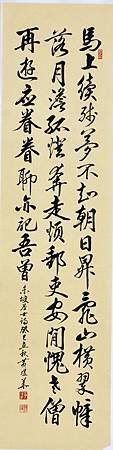 馬上續殘夢不知朝日昇亂山橫翠幛
落月澹孤燈奔走煩郵吏安閒愧老僧
再遊應眷眷聊亦記吾曾
東坡居士詩癸巳孟秋